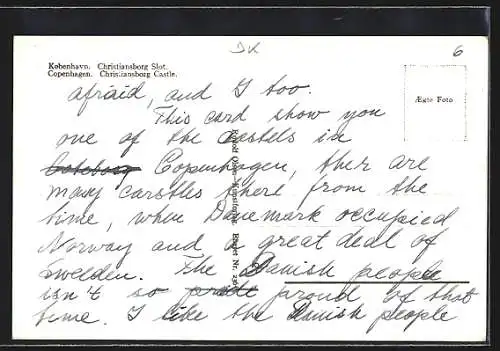 DK
6
København. Christiansborg Slot.
Copenhagen. Christiansborg Castle.
Ægte Foto
afraid, and I too.
This card show you
one of the castels in
Goteborg Copenhagen, ther are
many carstles there from the
time, when Danemark occupied
Norway and a great deal of
Sweeden. The Danish people
isn't so prode proud of that
time. I like the Danish people